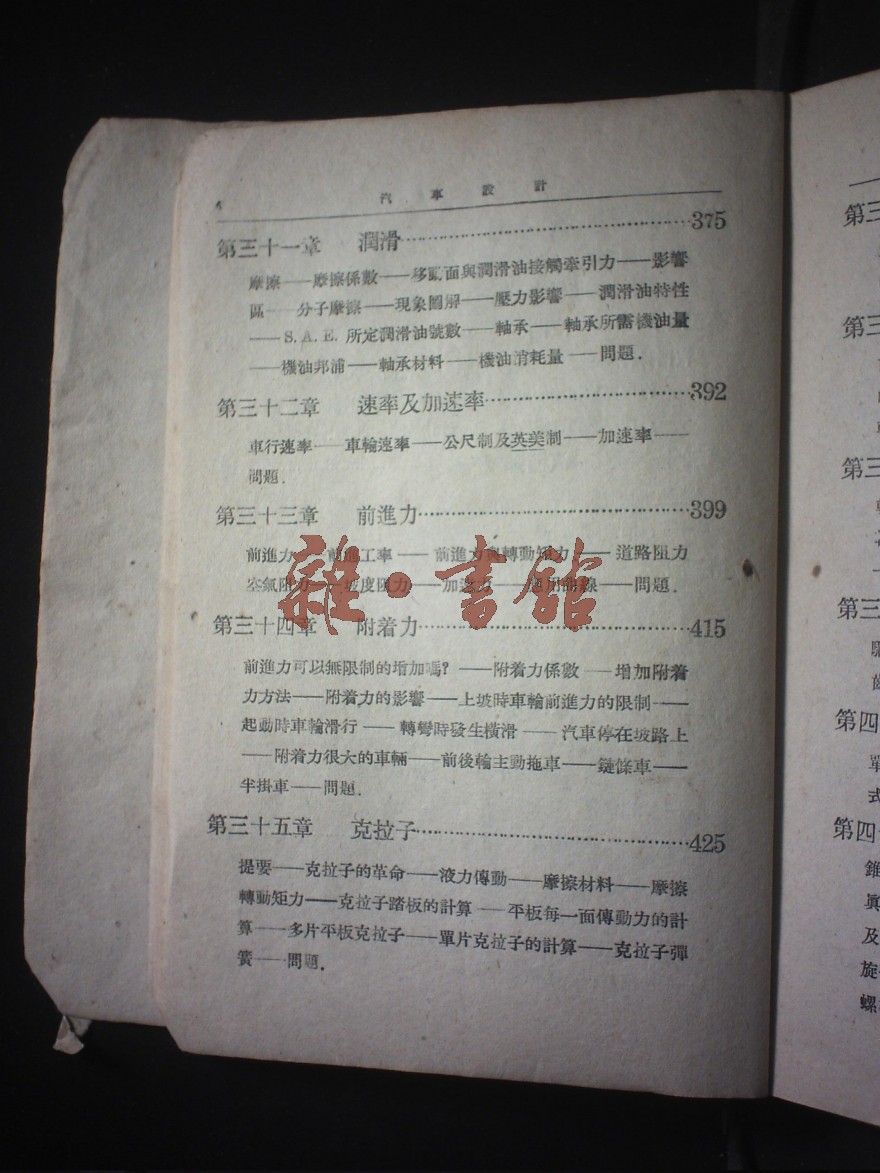 4 汽車設計
第三十一章 潤滑……375
摩擦——摩擦係數——移動面與潤滑油接觸牽引力——影響
區——分子摩擦——現象圖解——壓力影響——潤滑油特性
——S. A. E. 所定潤滑油號數——軸承——軸承所需機油量
——機油邦浦——軸承材料——機油消耗量——問題.
第三十二章 速率及加速率……392
車行速率——車輪速率——公尺制及英美制——加速率——
問題.
第三十三章 前進力……399
前進力——前進工率——前進力與轉動矩力——道路阻力
空氣阻力——坡度阻力——加速力——應用曲線——問題.
第三十四章 附着力……415
前進力可以無限制的增加嗎?——附着力係數——增加附着
力方法——附着力的影響——上坡時車輪前進力的限制——
起動時車輪滑行——轉彎時發生橫滑——汽車停在坡路上
——附着力很大的車輛——前後輪主動拖車——鏈條車——
半掛車——問題.
第三十五章 克拉子……425
提要——克拉子的革命——液力傳動——摩擦材料——摩擦
轉動矩力——克拉子踏板的計算——平板每一面傳動力的計
算——多片平板克拉子——單片克拉子的計算——克拉子彈
簧——問題.
雜·書館
第三
第三
第三
第三
第四
單
式
第四
錐
眞
及
旋
螺